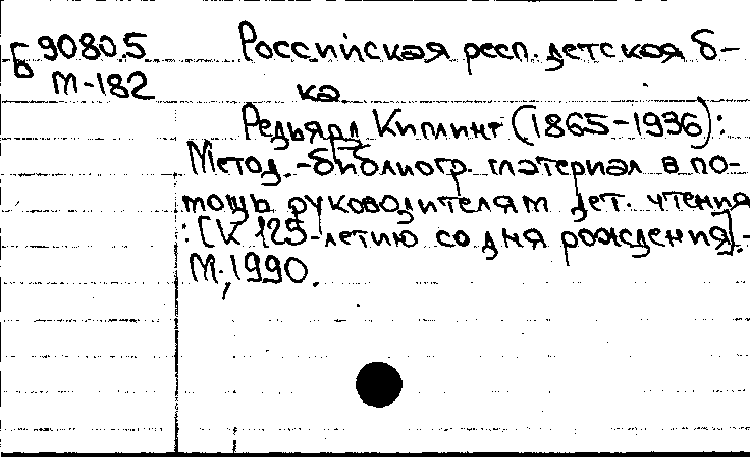 Б 9080.5 Российская респ. детская б-
М-182 ка
Редьярд Киплинг (1865-1936):
Метод.-библиогр. материал в по-
мощь руководителям дет. чтения
: [К 125-летию со дня рождения].-
М., 1990.